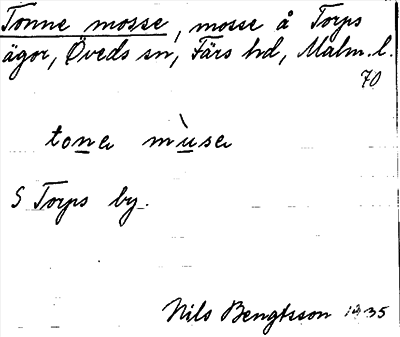 Tonne mosse, mosse å Torps
ägor, Öveds sn, Färs hd, Malm. l.
70
tona mùsa
S Torps by.
Nils Bengtsson 1935